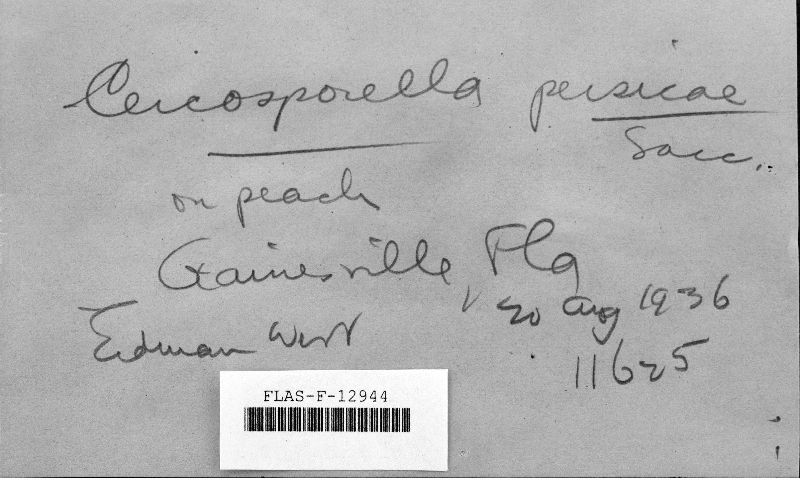 Cercosporella persicae
Sacc.
on peach
Gainesville, Fla
20 Aug 1936
Erdman West
11625
FLAS-F-12944